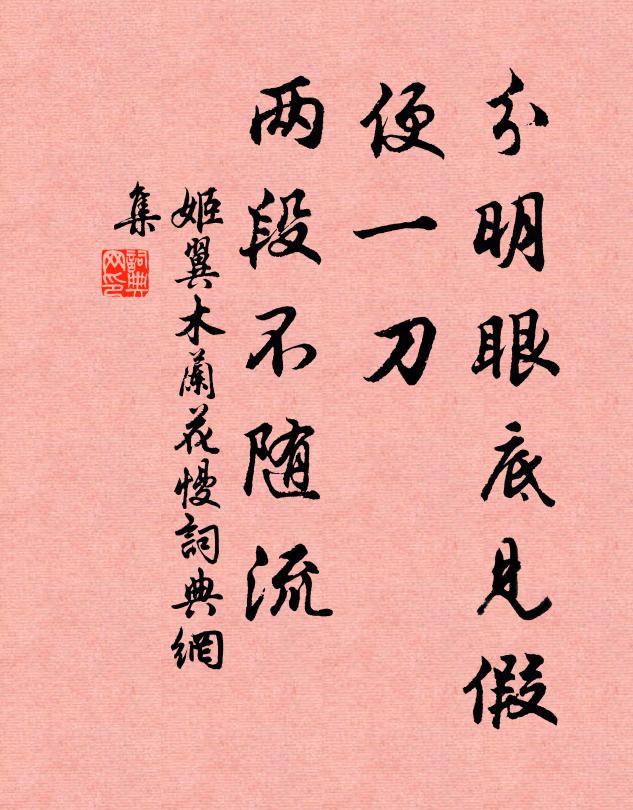 分明眼底见假
便一刀
两段不随流
姬翼木蘭花慢詞典網
集
詞典
网印